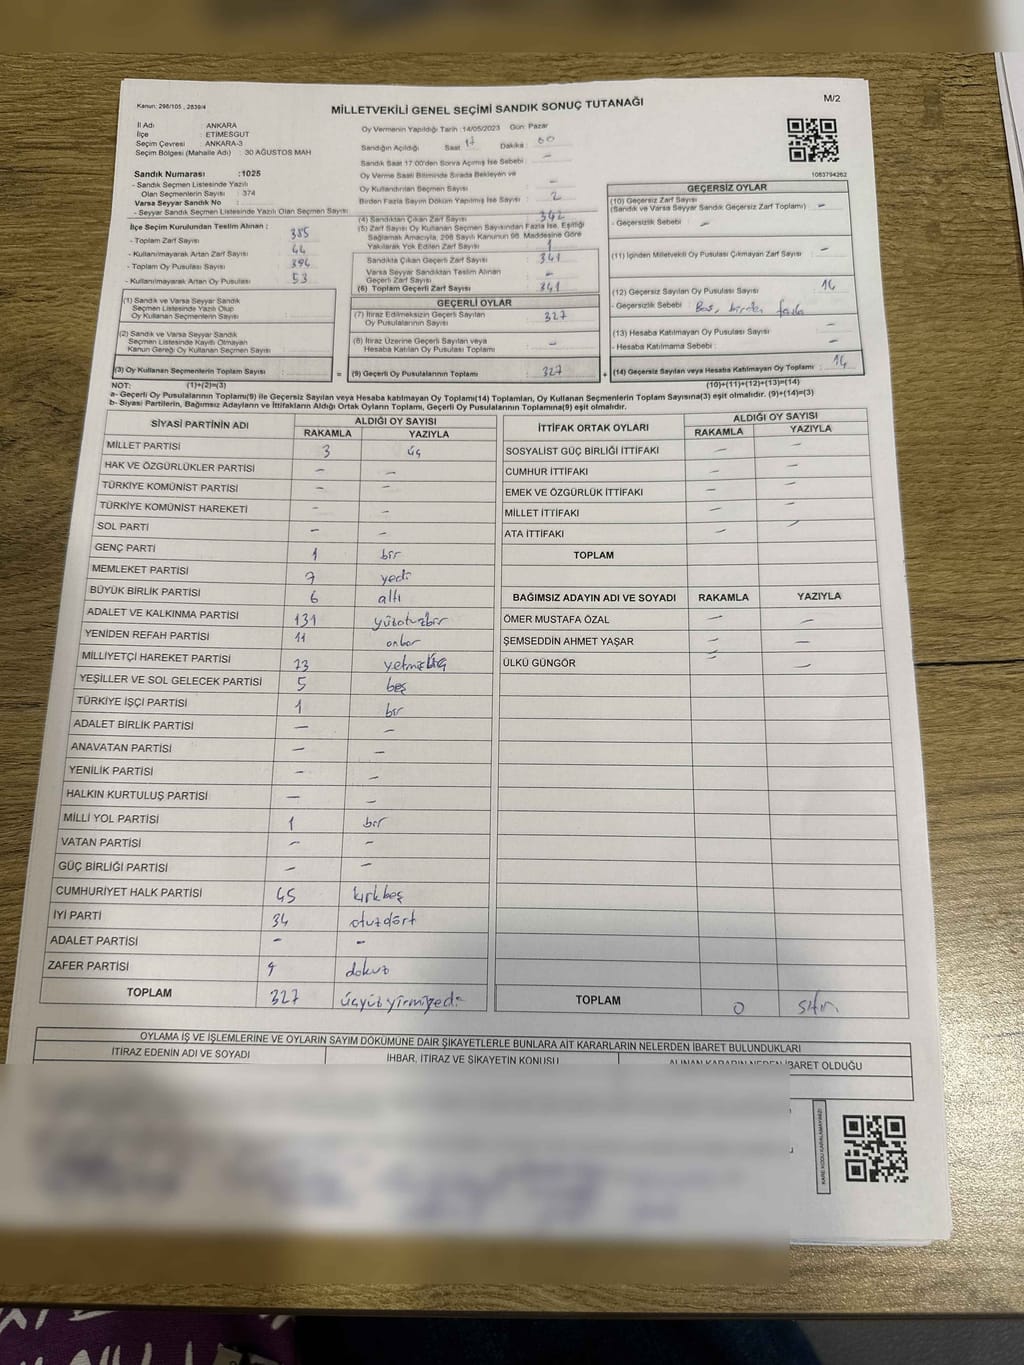 Kanun: 298/105 , 2839/4
MİLLETVEKİLİ GENEL SEÇİMİ SANDIK SONUÇ TUTANAĞI
M/2
İl Adı : ANKARA
İlçe : ETİMESGUT
Seçim Çevresi : ANKARA-3
Seçim Bölgesi (Mahalle Adı) : 30 AĞUSTOS MAH
Sandık Numarası :1025
- Sandık Seçmen Listesinde Yazılı
Olan Seçmenlerin Sayısı : 374
Varsa Seyyar Sandık No :
- Seyyar Sandık Seçmen Listesinde Yazılı Olan Seçmen Sayısı :
İlçe Seçim Kurulundan Teslim Alınan ;
- Toplam Zarf Sayısı : 385
- Kullanılmayarak Artan Zarf Sayısı : 44
- Toplam Oy Pusulası Sayısı : 394
- Kullanılmayarak Artan Oy Pusulası : 53
(1) Sandık ve Varsa Seyyar Sandık
Seçmen Listesinde Yazılı Olup
Oy Kullanan Seçmenlerin Sayısı :
(2) Sandık ve Varsa Seyyar Sandık
Seçmen Listesinde Kayıtlı Olmayan
Kanun Gereği Oy Kullanan Seçmen Sayısı :
(3) Oy Kullanan Seçmenlerin Toplam Sayısı :
Oy Vermenin Yapıldığı Tarih :14/05/2023 Gün: Pazar
Sandığın Açıldığı Saat : 17 Dakika : 00
Sandık Saat 17:00'den Sonra Açılmış İse Sebebi : –
Oy Verme Saati Bitiminde Sırada Bekleyen ve
Oy Kullandırılan Seçmen Sayısı : –
Birden Fazla Sayım Döküm Yapılmış İse Sayısı : 2
(4) Sandıktan Çıkan Zarf Sayısı : 342
(5) Zarf Sayısı Oy Kullanan Seçmen Sayısından Fazla İse, Eşitliği
Sağlamak Amacıyla, 298 Sayılı Kanunun 98. Maddesine Göre
Yakılarak Yok Edilen Zarf Sayısı : 1
Sandıkta Çıkan Geçerli Zarf Sayısı : 341
Varsa Seyyar Sandıktan Teslim Alınan
Geçerli Zarf Sayısı : –
(6) Toplam Geçerli Zarf Sayısı : 341
GEÇERLİ OYLAR
(7) İtiraz Edilmeksizin Geçerli Sayılan
Oy Pusulalarının Sayısı : 327
(8) İtiraz Üzerine Geçerli Sayılan veya
Hesaba Katılan Oy Pusulası Toplamı : –
= (9) Geçerli Oy Pusulalarının Toplamı : 327
1083794262
GEÇERSİZ OYLAR
(10) Geçersiz Zarf Sayısı
(Sandık ve Varsa Seyyar Sandık Geçersiz Zarf Toplamı) : –
- Geçersizlik Sebebi : –
(11) İçinden Milletvekili Oy Pusulası Çıkmayan Zarf Sayısı : –
(12) Geçersiz Sayılan Oy Pusulası Sayısı : 14
- Geçersizlik Sebebi : Boş, birden fazla
(13) Hesaba Katılmayan Oy Pusulası Sayısı : –
- Hesaba Katılmama Sebebi : –
+ (14) Geçersiz Sayılan veya Hesaba Katılmayan Oy Toplamı : 14
NOT: (1)+(2)=(3) (10)+(11)+(12)+(13)=(14)
a- Geçerli Oy Pusulalarının Toplamı(9) ile Geçersiz Sayılan veya Hesaba katılmayan Oy Toplamı(14) Toplamları, Oy Kullanan Seçmenlerin Toplam Sayısına(3) eşit olmalıdır. (9)+(14)=(3)
b- Siyasi Partilerin, Bağımsız Adayların ve İttifakların Aldığı Ortak Oyların Toplamı, Geçerli Oy Pusulalarının Toplamına(9) eşit olmalıdır.
SİYASİ PARTİNİN ADI ALDIĞI OY SAYISI
RAKAMLA YAZIYLA
MİLLET PARTİSİ 3 üç
HAK VE ÖZGÜRLÜKLER PARTİSİ – –
TÜRKİYE KOMÜNİST PARTİSİ – –
TÜRKİYE KOMÜNİST HAREKETİ – –
SOL PARTİ – –
GENÇ PARTİ 1 bir
MEMLEKET PARTİSİ 7 yedi
BÜYÜK BİRLİK PARTİSİ 6 altı
ADALET VE KALKINMA PARTİSİ 131 yüzotuzbir
YENİDEN REFAH PARTİSİ 11 onbir
MİLLİYETÇİ HAREKET PARTİSİ 73 yetmişüç
YEŞİLLER VE SOL GELECEK PARTİSİ 5 beş
TÜRKİYE İŞÇİ PARTİSİ 1 bir
ADALET BİRLİK PARTİSİ – –
ANAVATAN PARTİSİ – –
YENİLİK PARTİSİ – –
HALKIN KURTULUŞ PARTİSİ – –
MİLLİ YOL PARTİSİ 1 bir
VATAN PARTİSİ – –
GÜÇ BİRLİĞİ PARTİSİ – –
CUMHURİYET HALK PARTİSİ 45 kırkbeş
İYİ PARTİ 34 otuzdört
ADALET PARTİSİ – –
ZAFER PARTİSİ 9 dokuz
TOPLAM 327 üçyüzyirmiyedi
İTTİFAK ORTAK OYLARI ALDIĞI OY SAYISI
RAKAMLA YAZIYLA
SOSYALİST GÜÇ BİRLİĞİ İTTİFAKI – –
CUMHUR İTTİFAKI – –
EMEK VE ÖZGÜRLÜK İTTİFAKI – –
MİLLET İTTİFAKI – –
ATA İTTİFAKI – –
TOPLAM
BAĞIMSIZ ADAYIN ADI VE SOYADI RAKAMLA YAZIYLA
ÖMER MUSTAFA ÖZAL – –
ŞEMSEDDİN AHMET YAŞAR – –
ÜLKÜ GÜNGÖR – –
TOPLAM 0 sıfır
OYLAMA İŞ VE İŞLEMLERİNE VE OYLARIN SAYIM DÖKÜMÜNE DAİR ŞİKAYETLERLE BUNLARA AİT KARARLARIN NELERDEN İBARET BULUNDUKLARI
İTİRAZ EDENİN ADI VE SOYADI İHBAR, İTİRAZ VE ŞİKAYETİN KONUSU ALINAN KARARIN NEDEN İBARET OLDUĞU
KARE KODU KARALAMAYINIZ!